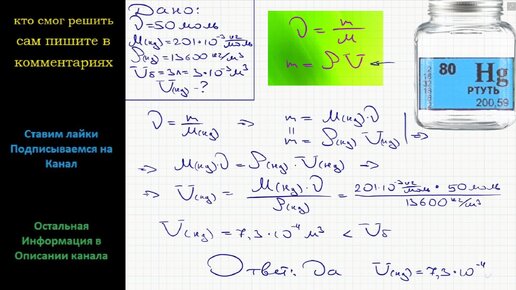 кто смог решить
сам пишите в
комментариях
Ставим лайки
Подписываемся на
Канал
Остальная
Информация в
Описании канала
Дано:
ν = 50 моль
M(Hg) = 201·10⁻³ кг/моль
ρ(Hg) = 13600 кг/м³
Vδ = 3л = 3·10⁻³ м³
V(Hg) - ?
ν = m/M
m = ρV ←
80 Hg
РТУТЬ
200,59
ν = m/M(Hg) ⇒ m = M(Hg)·ν
m = ρ(Hg)·V(Hg) | ⇒
⇒ M(Hg)·ν = ρ(Hg)·V(Hg) ⇒
⇒ V(Hg) = M(Hg)·ν/ρ(Hg) = 201·10⁻³ кг/моль · 50 моль/13600 кг/м³
V(Hg) = 7,3·10⁻⁴ м³ < Vδ
Ответ: Да V(Hg) = 7,3·10⁻⁴